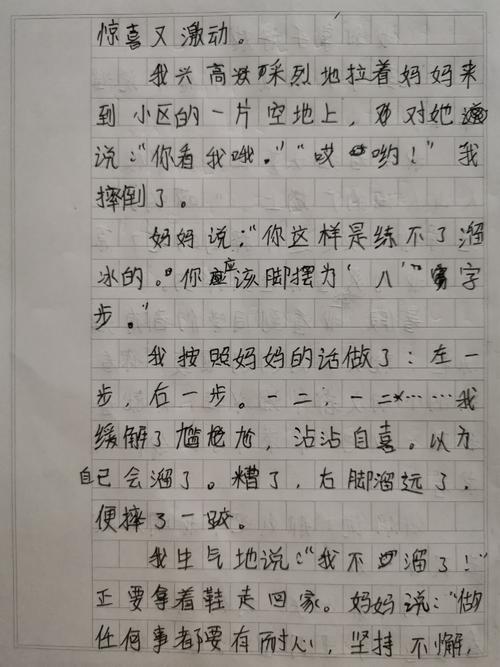 惊喜又激动。
我兴高采烈地拉着妈妈来
到小区的一片空地上，对她
说：“你看我哦。”“哎哟！”我
摔倒了。
妈妈说：“你这样是练不了溜
冰的。”你应该脚摆为‘八’字
步。”
我按照妈妈的话做了：左一
步，右一步。一二，一二……我
缓解了尴尬，沾沾自喜。以为
自己会溜了。糟了，右脚溜远了，
便摔了一跤。
我生气地说：“我不溜了！”
正要拿着鞋走回家。妈妈说：“做
任何事都要有耐心，坚持不懈，